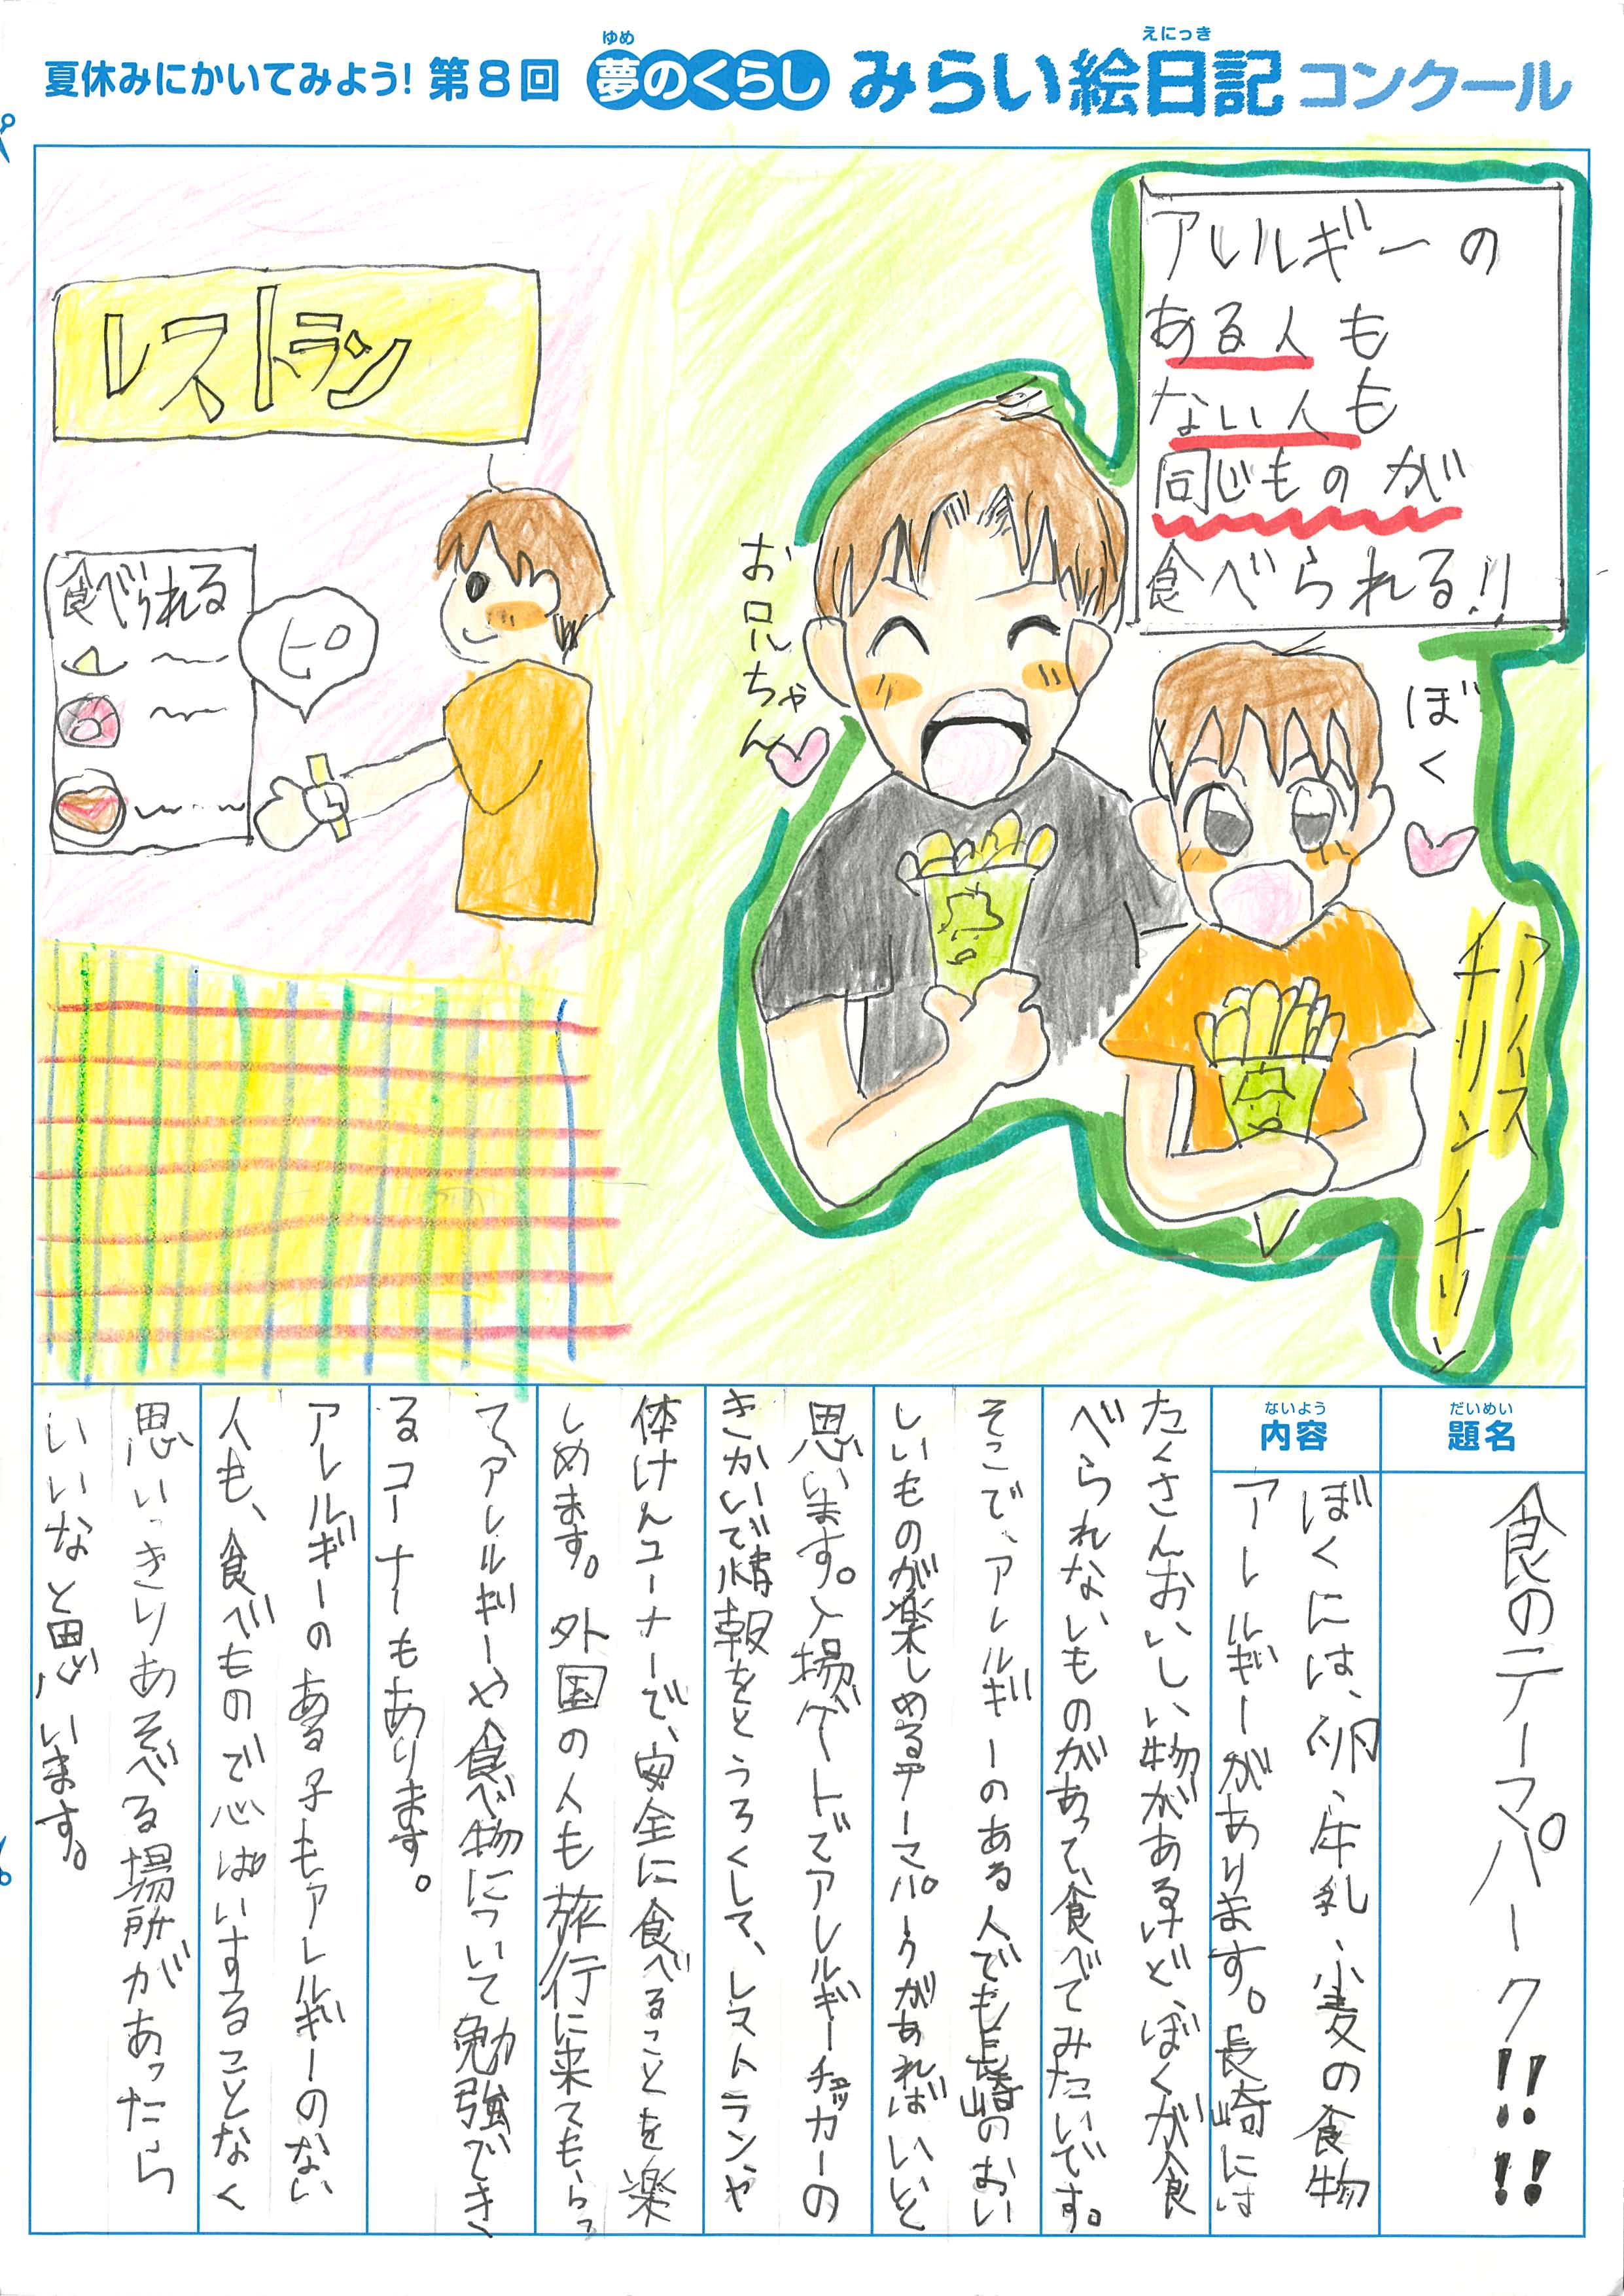 夏休みにかいてみよう! 第8回 夢のくらし みらい絵日記 コンクール
ゆめ
えにっき
レストラン
食べられる
ピ
アレルギーの
ある人も
ない人も
同じものが
食べられる!!
お兄ちゃん
ぼく
アイス
チリンチリン
だいめい
題名
食のテーマパーク!!!!
ないよう
内容
ぼくには、卵、牛乳、小麦の食物
アレルギーがあります。長崎には
たくさんおいしい物があるけど、ぼくが食
べられないものがあって、食べてみたいです。
そこで、アレルギーのある人でも長崎のおい
しいものが楽しめるテーマパークがあればいいと
思います。入場ゲートでアレルギーチェッカーの
きかいで情報をとうろくして、レストランや
体けんコーナーで、安全に食べることを楽
しめます。外国の人も旅行に来てもらっ
て、アレルギーや食べ物について勉強でき
るコーナーもあります。
アレルギーのある子もアレルギーのない
人も、食べもので心ぱいすることなく
思いっきりあそべる場所があったら
いいなと思います。